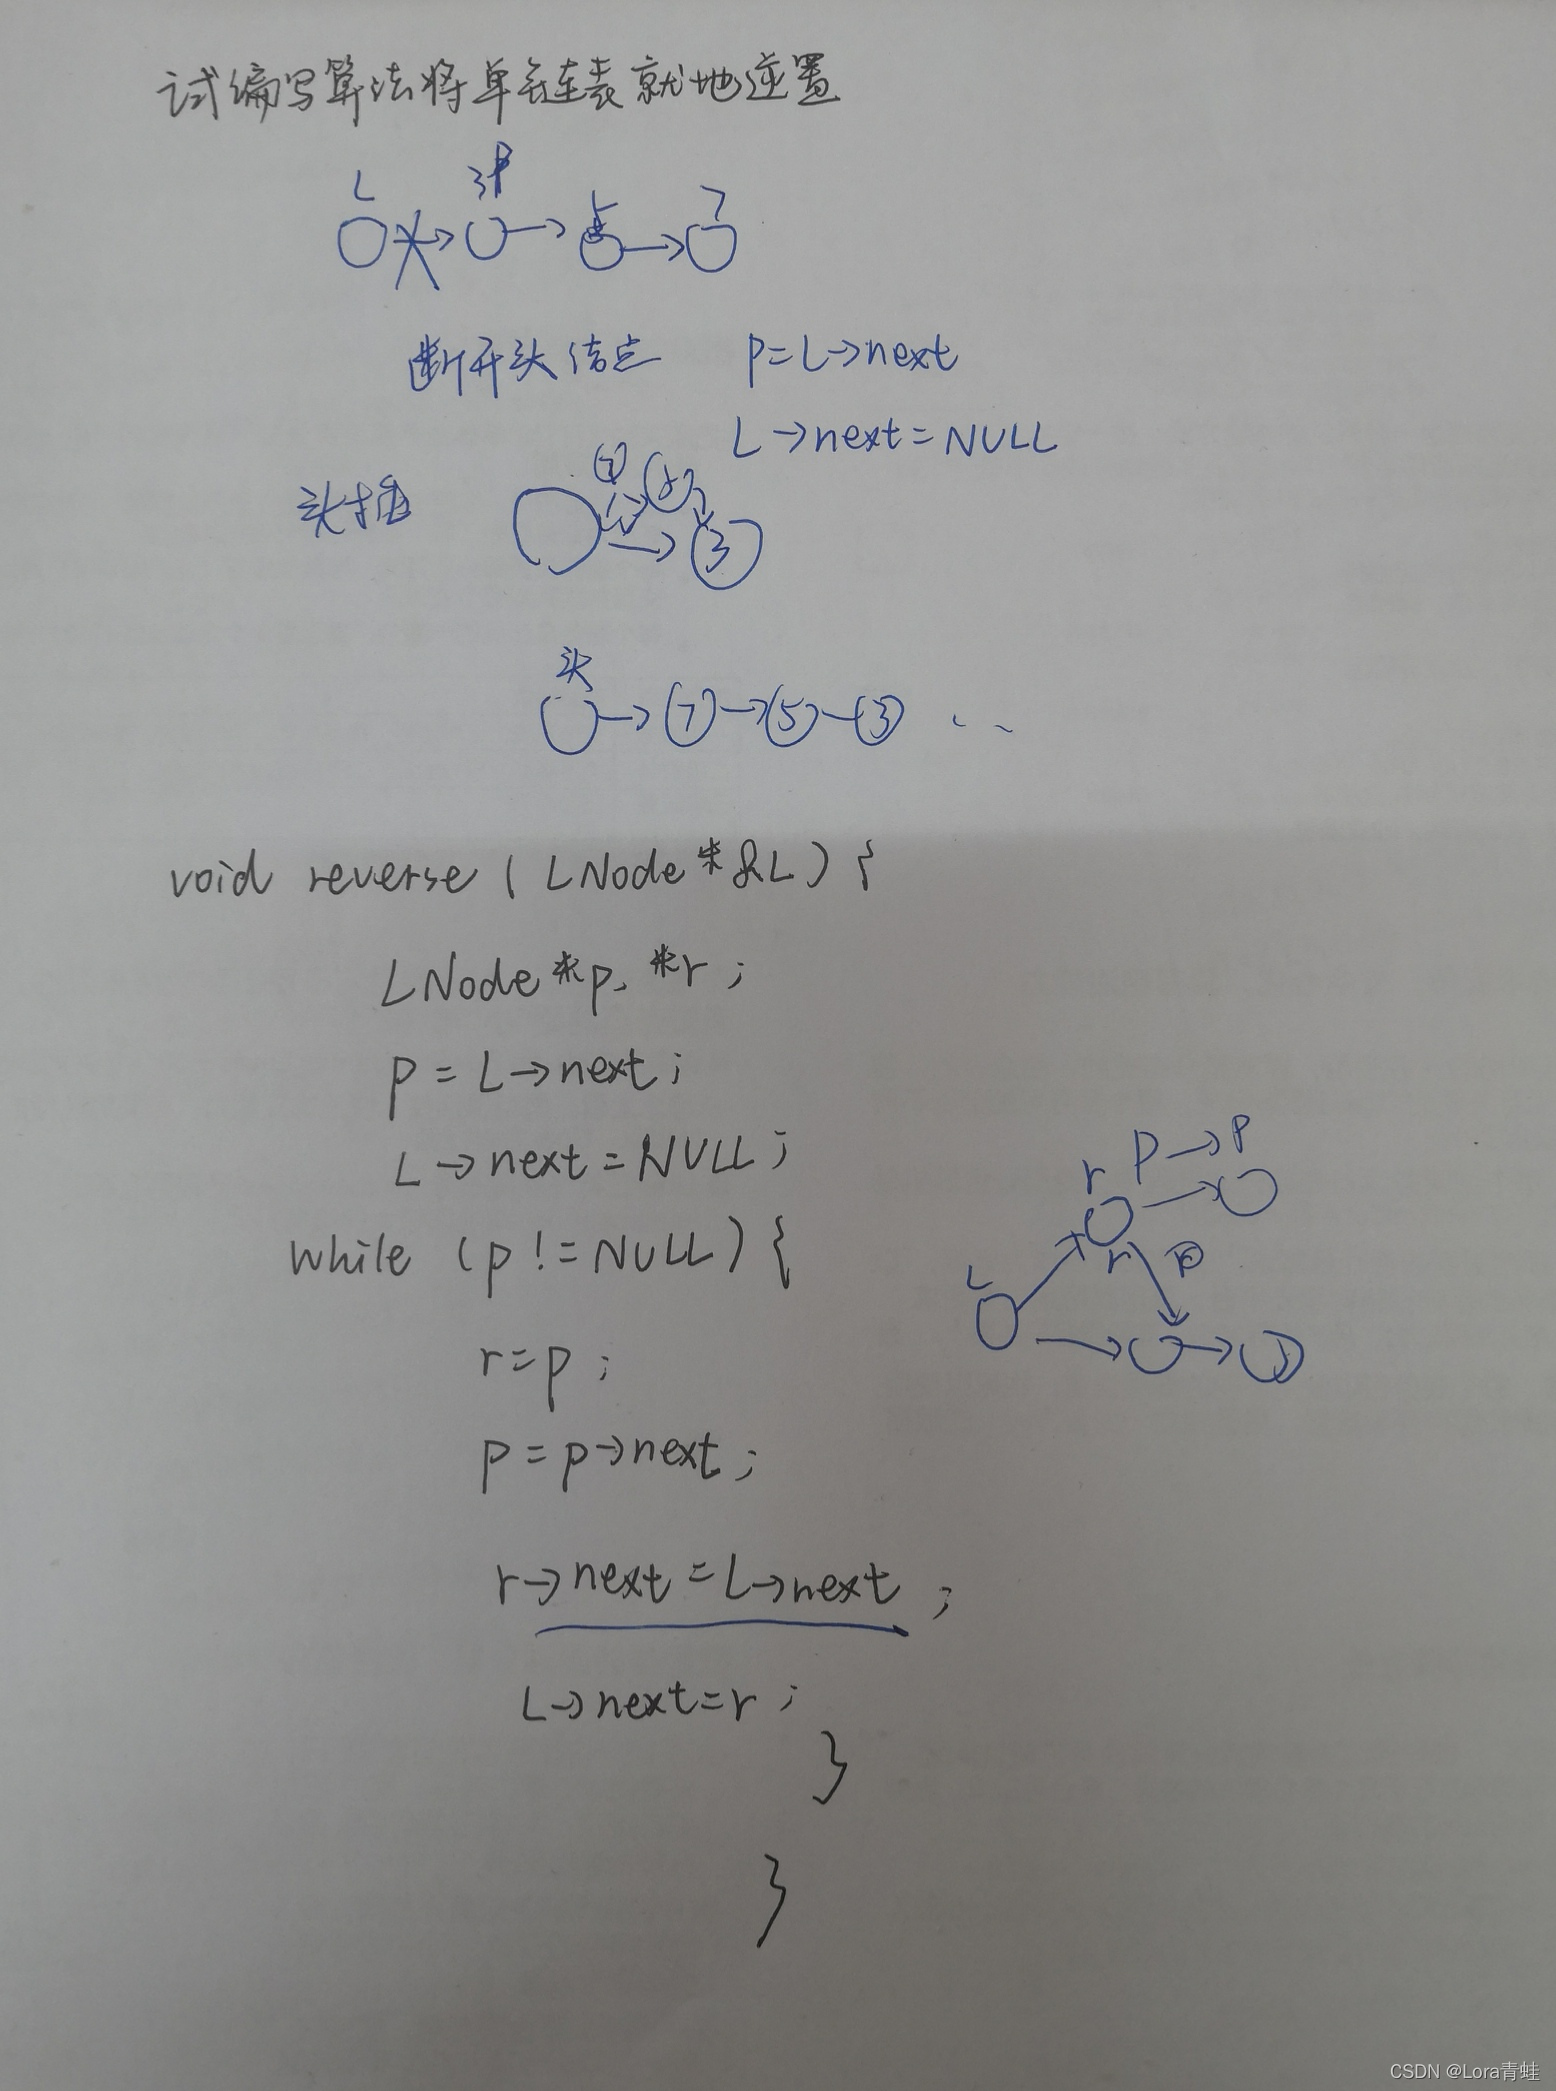 试编写算法将单链表就地逆置
L 3 P 5 7
断开头结点 p=L→next
L→next=NULL
头插 7 5 3
头
7 5 3
void reverse(LNode *&L){
LNode *p, *r;
p=L→next;
L→next=NULL;
while (p!=NULL){
r=p;
p=p→next;
r→next=L→next;
L→next=r;
}
}
r p→p
r
L
CSDN @Lora青蛙